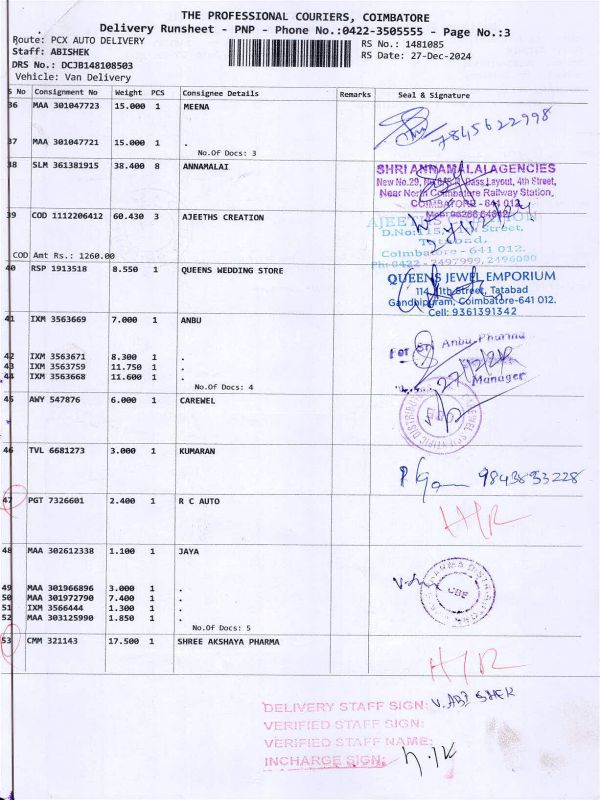 THE PROFESSIONAL COURIERS, COIMBATORE
Delivery Runsheet - PNP - Phone No.:0422-3505555 - Page No.:3
Route: PCX AUTO DELIVERY
Staff: ABISHEK
DRS No.: DCJB148108503
Vehicle: Van Delivery
RS No.: 1481085
RS Date: 27-Dec-2024
S No Consignment No Weight PCS Consignee Details Remarks Seal & Signature
36 MAA 301047723 15.000 1 MEENA
7845622998
37 MAA 301047721 15.000 1 .
No.Of Docs: 3
38 SLM 361381915 38.400 8 ANNAMALAI
SHRI ANNAMALAI AGENCIES
Near North Coimbatore Railway Station,
COIMBATORE - 641 012.
39 COD 1112206412 60.430 3 AJEETHS CREATION
COD Amt Rs.: 1260.00
Tatabad,
Coimbatore - 641 012.
Ph:0422 - 2497999, 2496000
40 RSP 1913518 8.550 1 QUEENS WEDDING STORE
QUEENS JEWEL EMPORIUM
114, 11th Street, Tatabad
Gandhipuram, Coimbatore-641 012.
Cell: 9361391342
41 IXM 3563669 7.000 1 ANBU
For Sri Anbu Pharma
27/12/24
Manager
42 IXM 3563671 8.300 1 .
43 IXM 3563759 11.750 1 .
44 IXM 3563668 11.600 1 .
No.Of Docs: 4
45 AWY 547876 6.000 1 CAREWEL
46 TVL 6681273 3.000 1 KUMARAN
9843833228
47 PGT 7326601 2.400 1 R C AUTO
48 MAA 302612338 1.100 1 JAYA
CBE
49 MAA 301966896 3.000 1 .
50 MAA 301972790 7.400 1 .
51 IXM 3566444 1.300 1 .
52 MAA 303125990 1.850 1 .
No.Of Docs: 5
53 CMM 321143 17.500 1 SHREE AKSHAYA PHARMA
DELIVERY STAFF SIGN: V. ABISHEK
VERIFIED STAFF SIGN:
VERIFIED STAFF NAME:
INCHARGE SIGN: